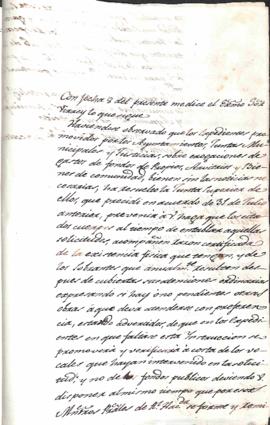 Con fecha 8 del presente me dice el Exmo. Sor.
Virrey lo que sigue
Haviendose observado que los Expedientes pro-
movidos por los Ayuntamientos, Juntas Mu-
nicipales y Justicias, sobre erogaciones de
gastos de fondos de Propios, Arvitrios y Bie-
nes de comunidad vienen sin las noticias ne-
cesarias, ha resuelto la Junta Superior de
ellos, que presidí en acuerdo de 31 de Julio
anterior, prevenir á V. haga que los cita-
dos cuerpos al tiempo de entablar aquellas
solicitudes, acompañen razon certificada
de la existencia fisica que tengan, y de
los sobrantes que anualmte. resulten des-
pues de cubiertas sus atenciones ordinarias
expresando si hay ó no pendientes otras
obras á que deva atenderse con preferen-
cia, estando advertidos, de que en los Expedien-
tes en que faltare esta Instruccion se
promoverá y verificará á costa de los vo-
cales que hayan intervenido en la solici-
tud, y no de los fondos publicos deviendo V.
disponer al mismo tiempo que por esos
Mntros. de Rl. Hazda. se forme y remi-